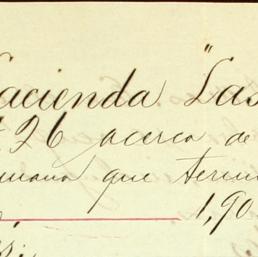 Hacienda "Las
26 acerca de
semana que termi
1,90